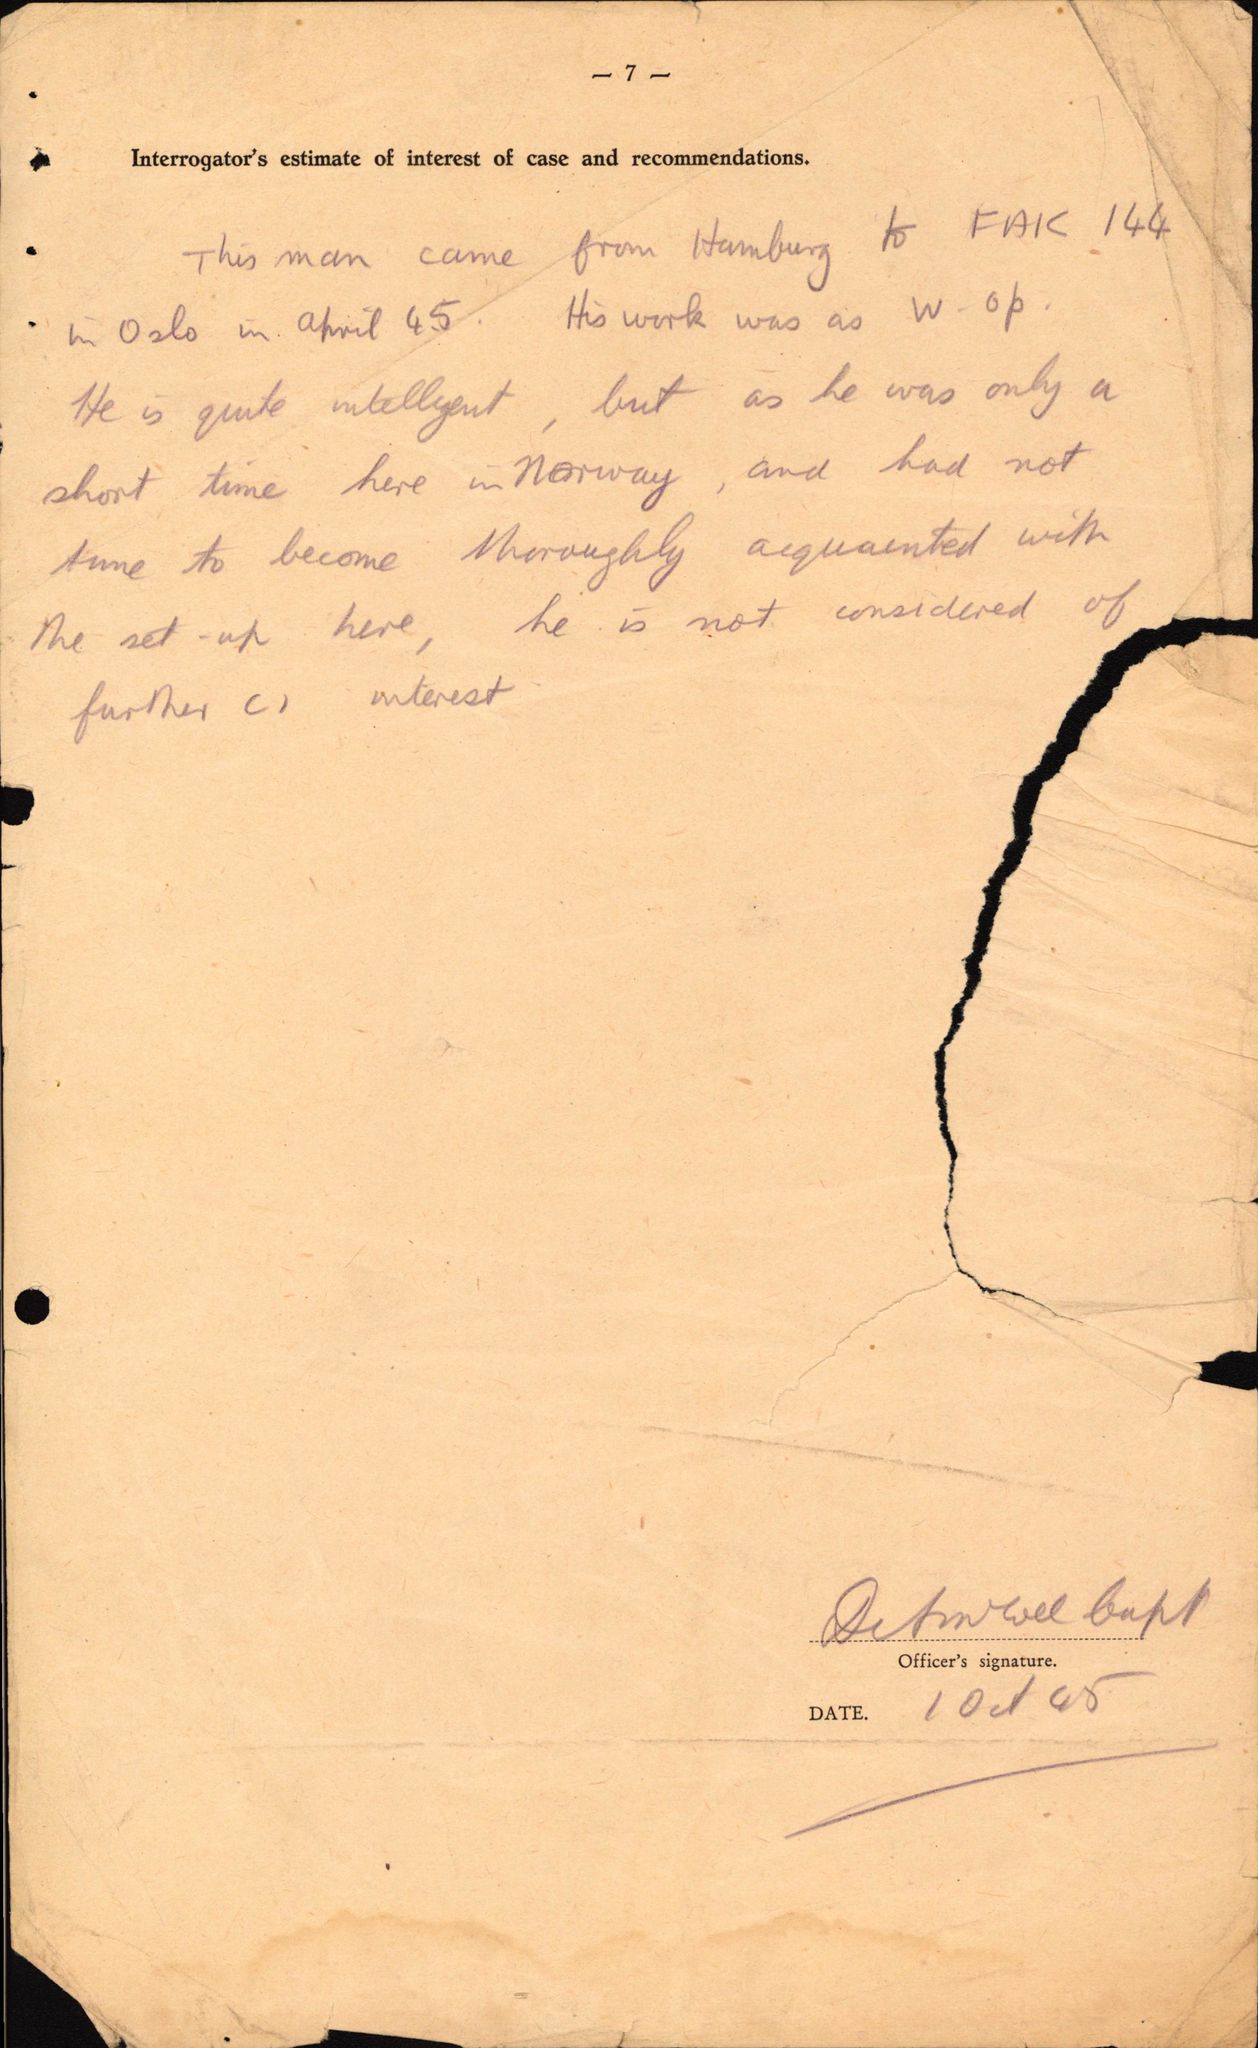 — 7 —
Interrogator's estimate of interest of case and recommendations.
This man came from Hamburg to FAK 144
in Oslo in april 45. His work was as W-op.
He is quite intelligent, but as he was only a
short time here in Norway, and had not
time to become thoroughly acquainted with
the set-up here, he is not considered of
further CI interest
Capt
Officer's signature.
DATE. 1 Oct 45